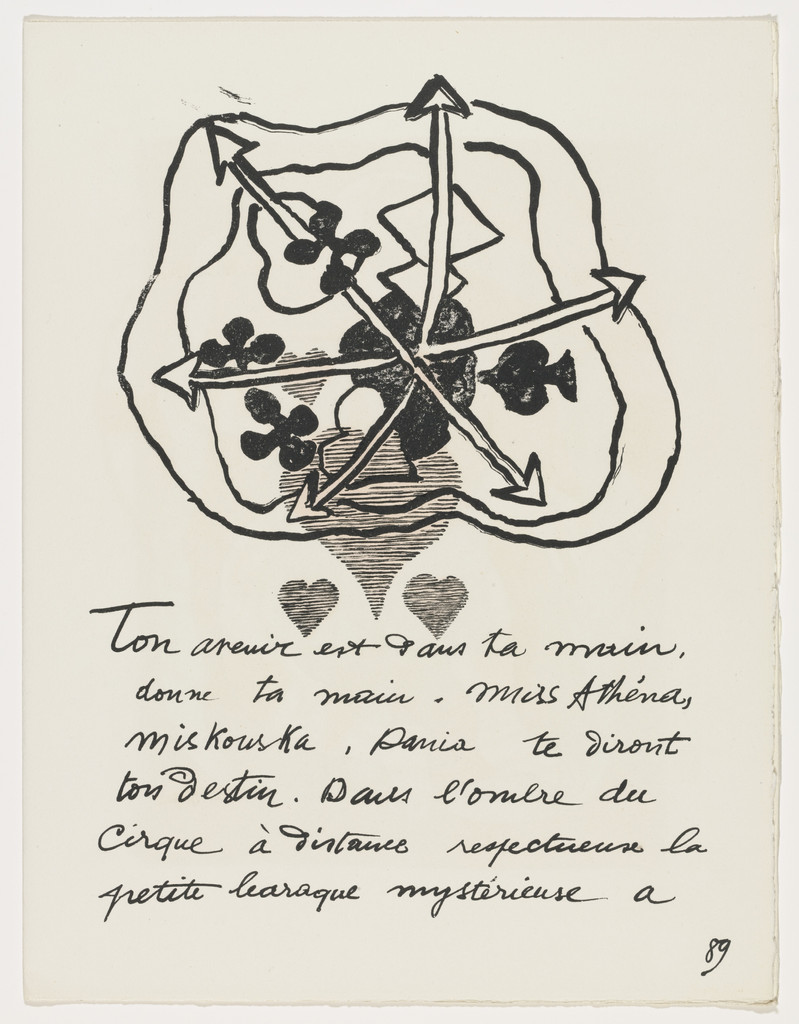 Ton avenir est dans ta main,
donne ta main. Miss Athéna,
Miskouska, Dania te diront
ton destin. Dans l'ombre du
Cirque à distance respectueuse la
petite baraque mystérieuse a
89